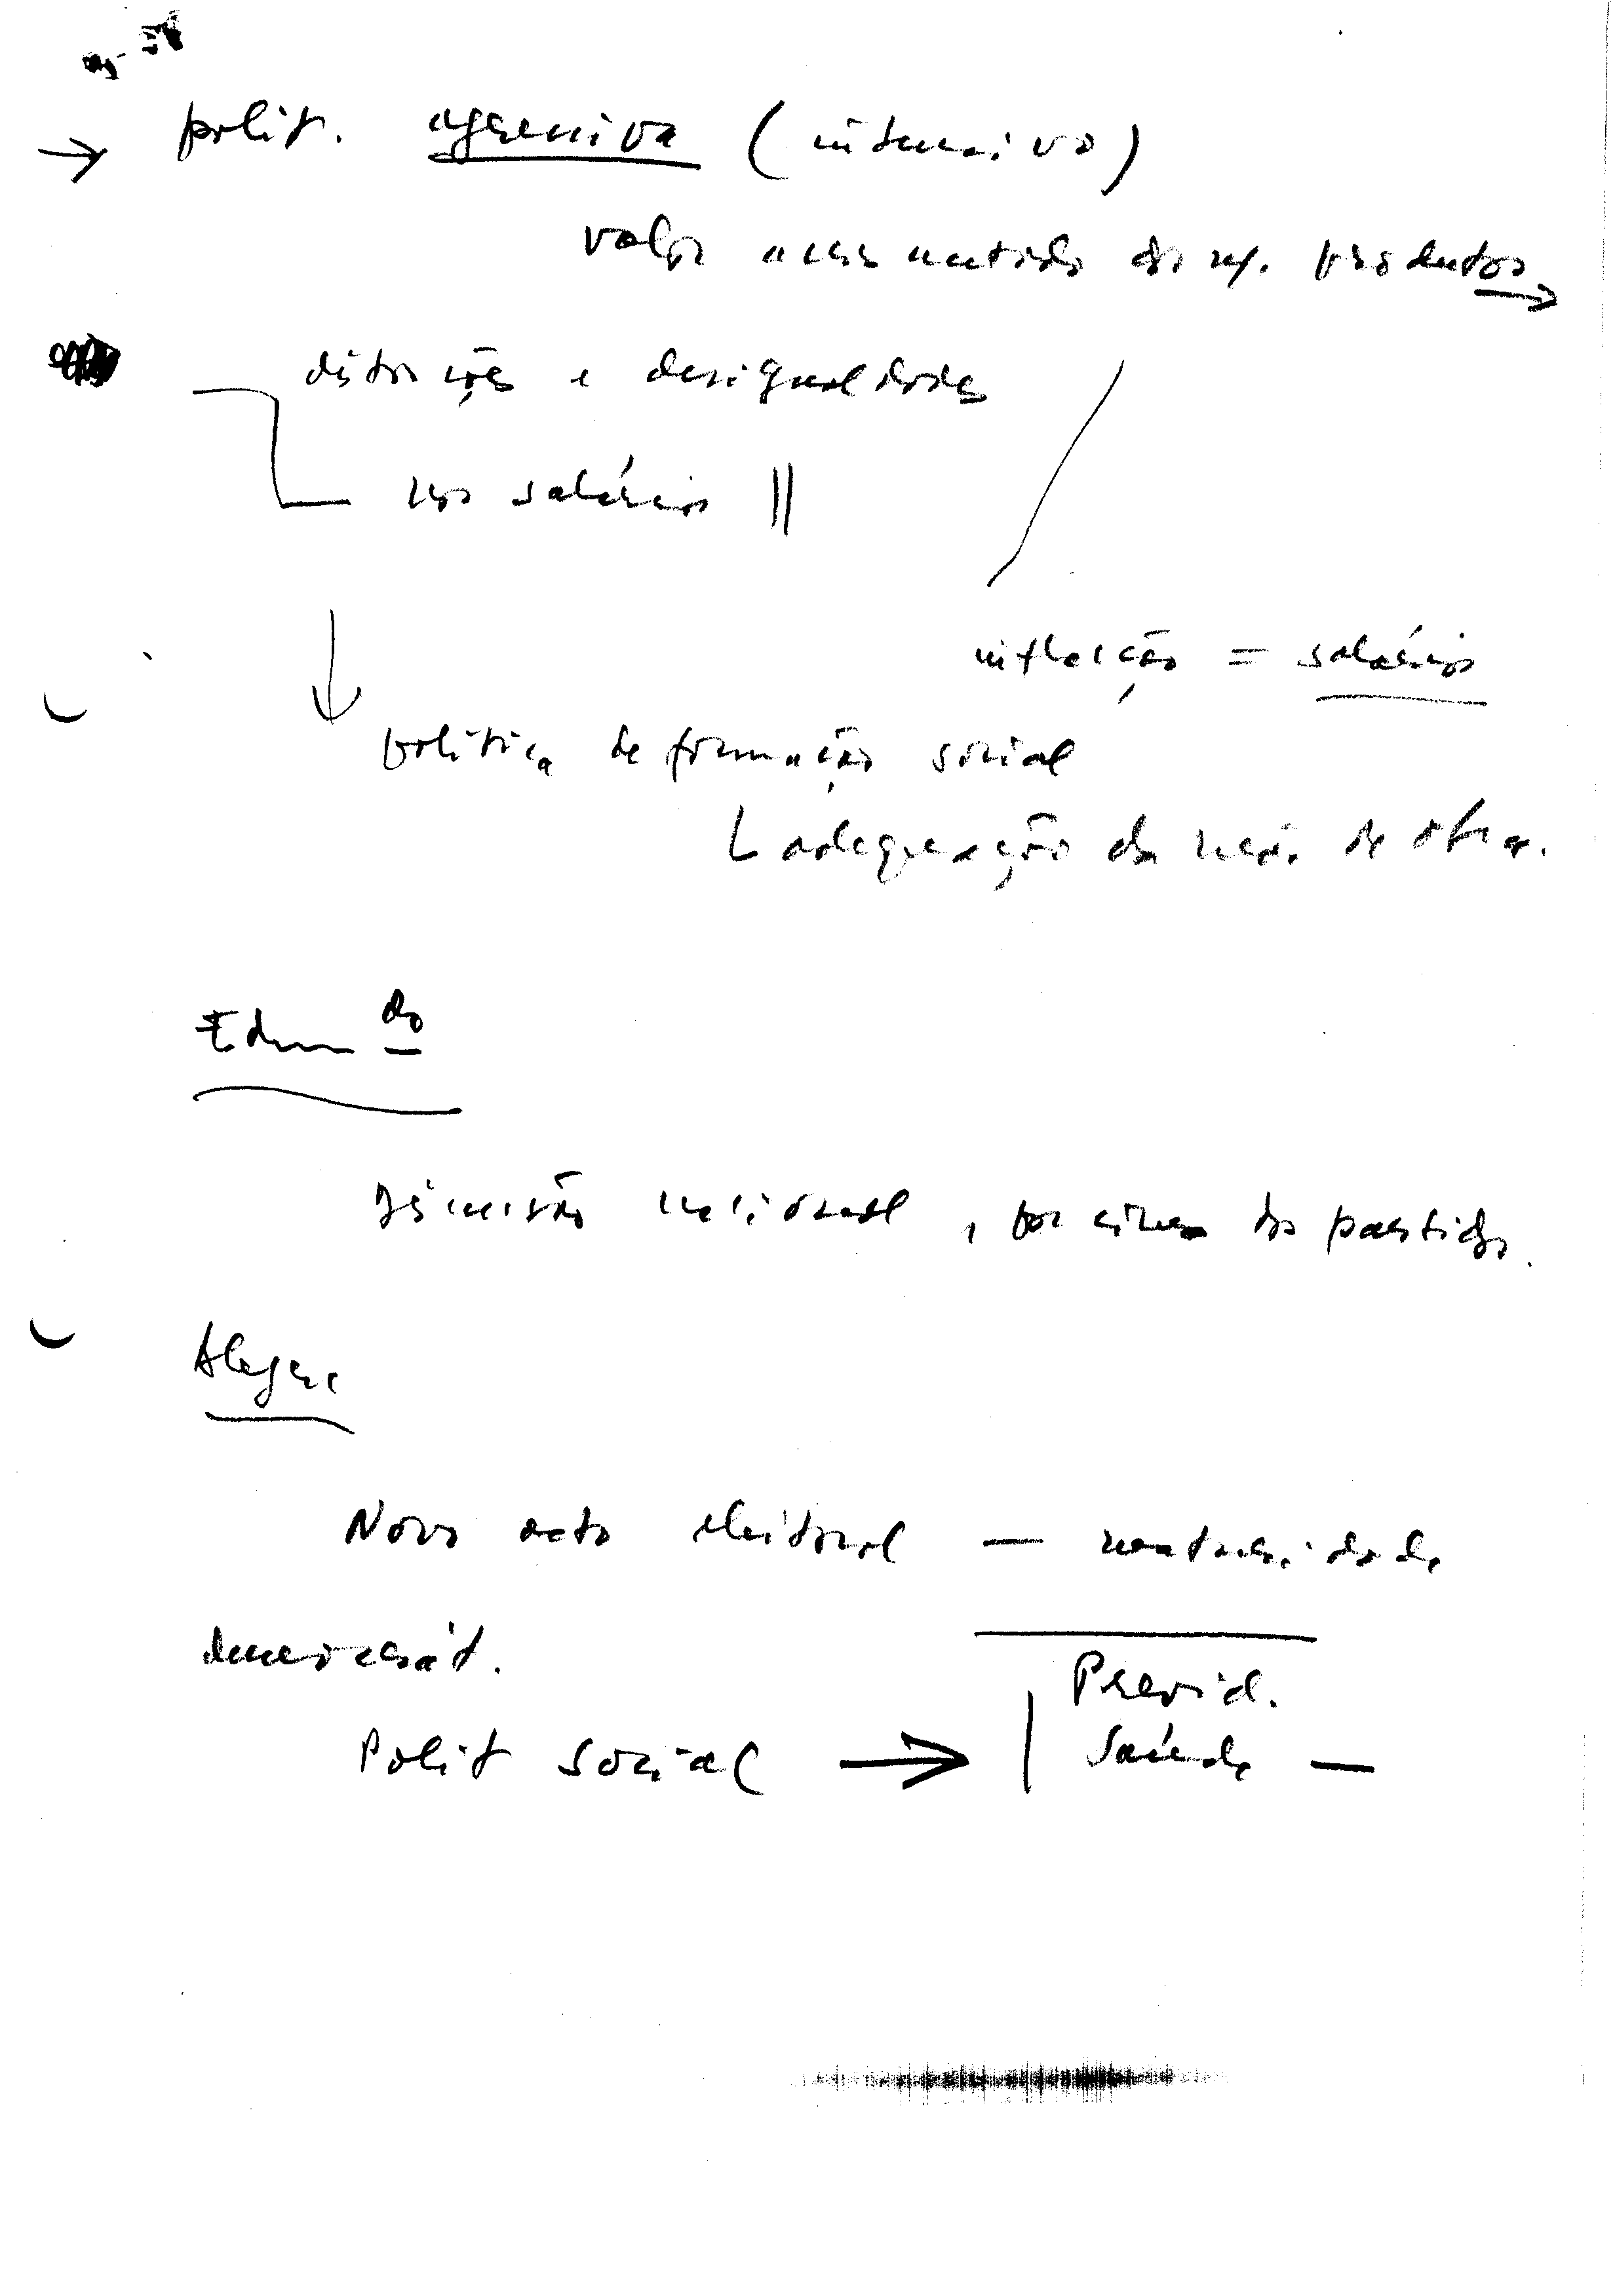 → polit. agressiva (intensivo)
valor acrescentado dos n/. produtos →
distorções e desigualdades
nos salários ||
inflação = salários
↓ política de formação social
adequação da mão de obra.
Edmundo
Discussão nacional, por cima dos partidos.
Alegre
Novo acto eleitoral —
democrát.
Previd.
Polit social → | Saúde —